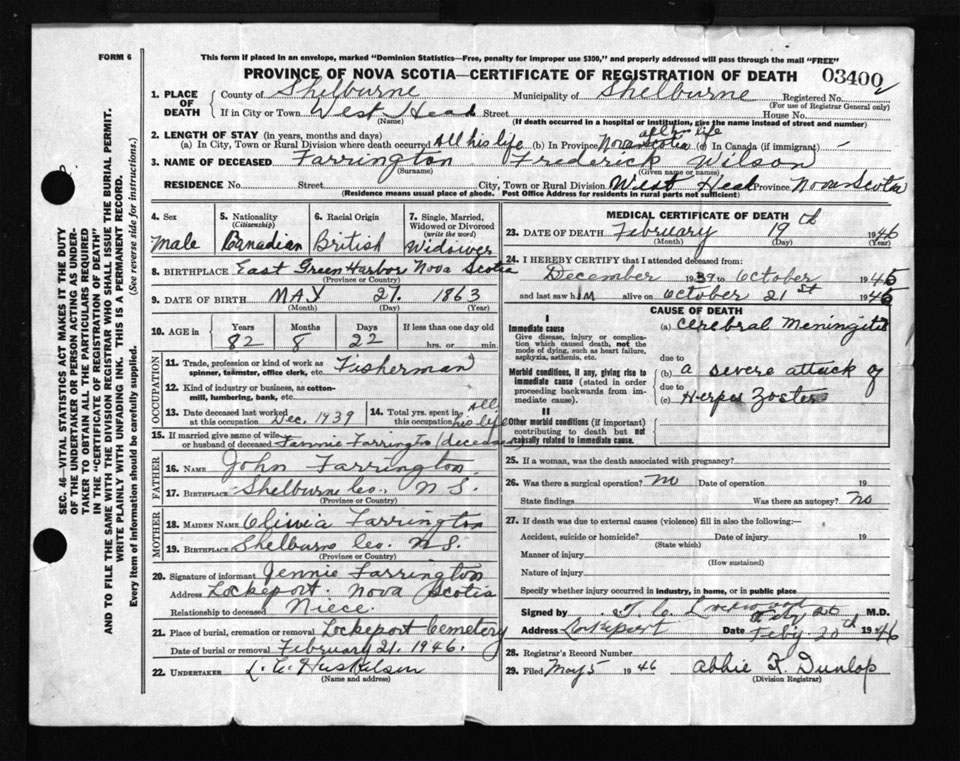 FORM 6
This form if placed in an envelope, marked "Dominion Statistics—Free, penalty for improper use $300," and properly addressed will pass through the mail "FREE"
PROVINCE OF NOVA SCOTIA—CERTIFICATE OF REGISTRATION OF DEATH 03400
1. PLACE OF DEATH County of Shelburne Municipality of Shelburne Registered No.
(For use of Registrar General only)
If in City or Town West Head Street House No.
(Name) (If death occurred in a hospital or institution, give the name instead of street and number)
2. LENGTH OF STAY (in years, months and days)
(a) In City, Town or Rural Division where death occurred All his life (b) In Province Nova Scotia all his life (c) In Canada (if immigrant) -
3. NAME OF DECEASED Farrington Frederick Wilson
(Surname) (Given name or names)
RESIDENCE No. Street City, Town or Rural Division West Head Province Nova Scotia
(Residence means usual place of abode. Post Office Address for residents in rural parts not sufficient)
4. Sex Male
5. Nationality (Citizenship) Canadian
6. Racial Origin British
7. Single, Married, Widowed or Divorced (write the word) Widower
8. BIRTHPLACE East Green Harbor Nova Scotia
(Province or Country)
9. DATE OF BIRTH MAY 27. 1863
(Month) (Day) (Year)
10. AGE in Years Months Days If less than one day old
82 8 22 hrs. or min.
OCCUPATION
11. Trade, profession or kind of work as spinner, teamster, office clerk, etc. Fisherman
12. Kind of industry or business, as cotton-mill, lumbering, bank, etc.
13. Date deceased last worked at this occupation Dec, 1939
14. Total yrs. spent in this occupation All his life
15. If married give name of wife or husband of deceased Fannie Farrington (deceased
FATHER
16. NAME John Farrington
17. BIRTHPLACE Shelburne Co., N S.
(Province or Country)
MOTHER
18. MAIDEN NAME Olivia Farrington
19. BIRTHPLACE Shelburne Co. N.S.
(Province or Country)
20. Signature of informant Jennie Farrington
Address Lockeport. Nova Scotia
Relationship to deceased Niece.
21. Place of burial, cremation or removal Lockeport Cemetery
Date of burial or removal February 21. 1946.
22. UNDERTAKER
(Name and address)
MEDICAL CERTIFICATE OF DEATH
23. DATE OF DEATH February 19th 1946
(Month) (Day) (Year)
24. I HEREBY CERTIFY that I attended deceased from:
December 1939 to October 1945
and last saw him alive on October 21st 1945
CAUSE OF DEATH
I
Immediate cause
Give disease, injury or complication which caused death, not the mode of dying, such as heart failure, asphyxia, asthenia, etc.
(a) Cerebral Meningitis
due to
Morbid conditions, if any, giving rise to immediate cause (stated in order proceeding backwards from immediate cause).
(b) a severe attack of
due to
(c) Herpes Zoster
II
Other morbid conditions (if important) contributing to death but not causally related to immediate cause.
25. If a woman, was the death associated with pregnancy?
26. Was there a surgical operation? NO Date of operation 19
State findings Was there an autopsy? NO
27. If death was due to external causes (violence) fill in also the following:—
Accident, suicide or homicide? Date of injury 19
(State which)
Manner of injury
(How sustained)
Nature of injury
Specify whether injury occurred in industry, in home, or in public place
Signed by M.D.
Address Lockeport Date Feby. 20th 1946
28. Registrar's Record Number
29. Filed May 5 1946 Abbie F. Dunlop
(Division Registrar)
SEC. 46—VITAL STATISTICS ACT MAKES IT THE DUTY
OF THE UNDERTAKER OR PERSON ACTING AS UNDER-
TAKER TO OBTAIN ALL THE PARTICULARS REQUIRED
IN THE "CERTIFICATE OF REGISTRATION OF DEATH"
AND TO FILE THE SAME WITH THE DIVISION REGISTRAR WHO SHALL ISSUE THE BURIAL PERMIT.
WRITE PLAINLY WITH UNFADING INK. THIS IS A PERMANENT RECORD.
Every item of information should be carefully supplied. (See reverse side for instructions.)